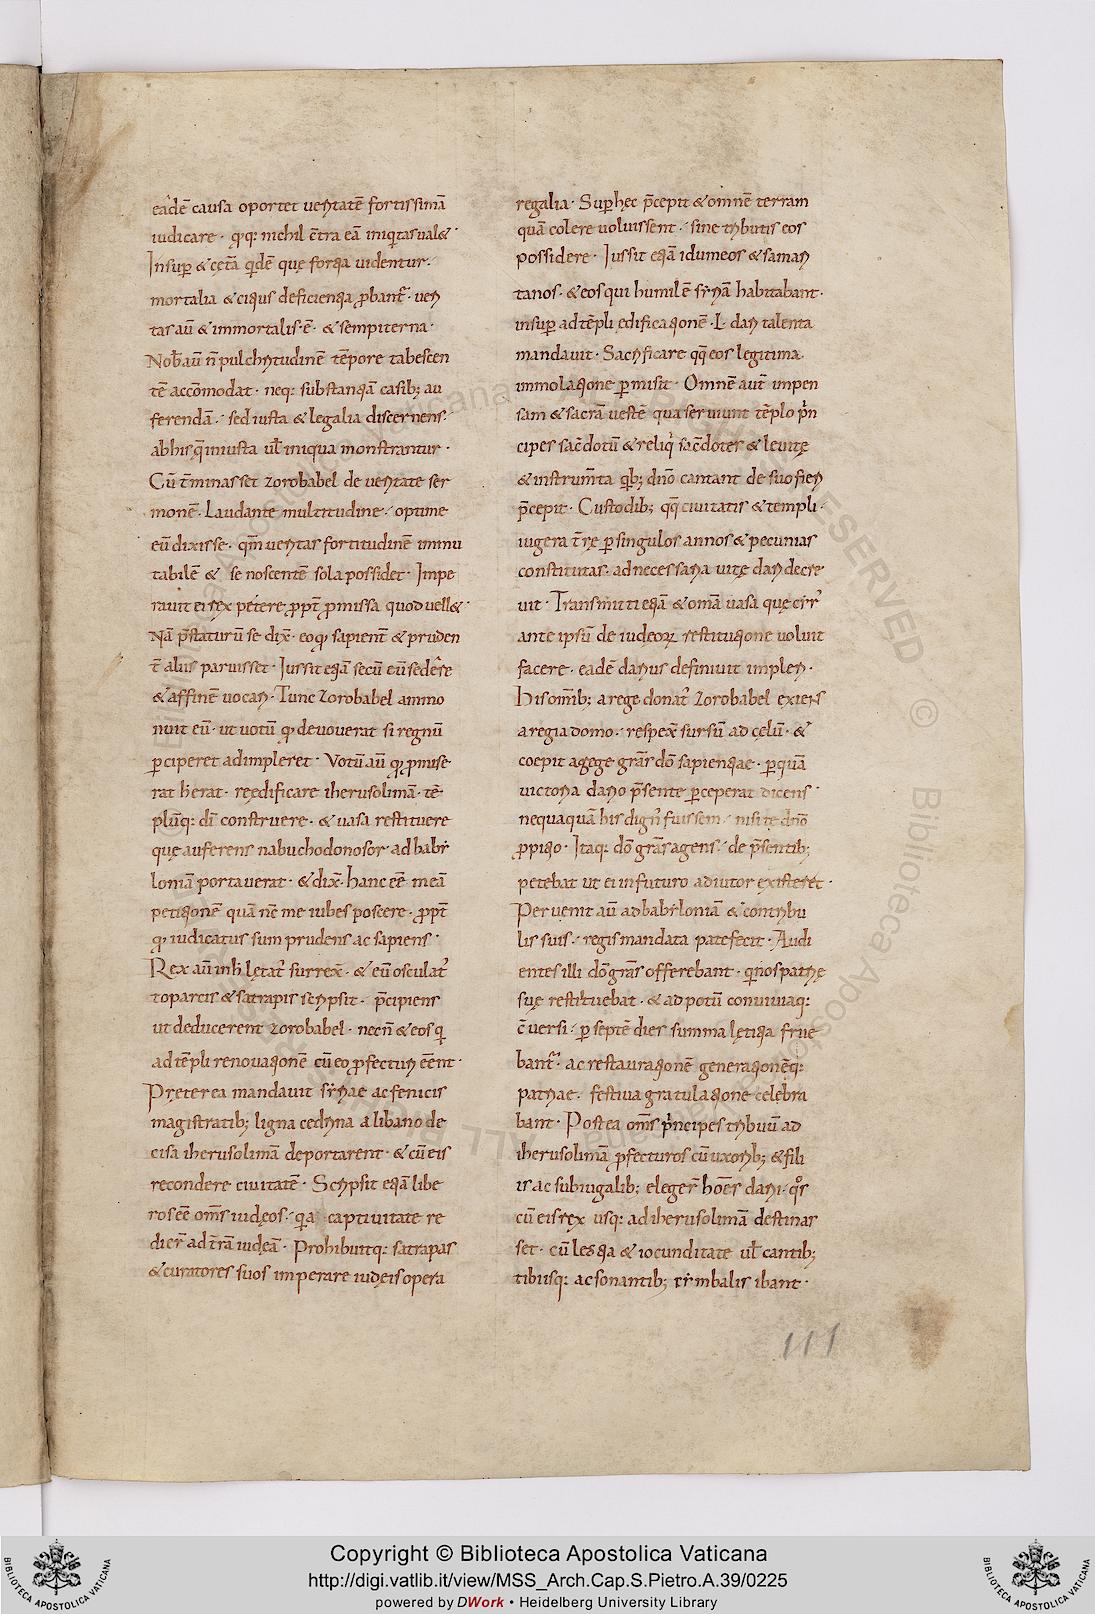 eadē causa oportet ueritatē fortissimā
iudicare · qꝫ nichil c̄tra eā iniq̇tas ual& ·
Insup̄ & cętā q̇dē quę fortia uidentur ·
mortalia & citius deficientia ꝓbant᷑ · ueri
tas aū & immortalis · ē · & sempiterna ·
Nob̄ aū ñ pulchritudinē tēpore tabescen
tē accōmodat · neqꝫ substantiā casibꝫ au
ferendā · sed iusta & legalia discernens ·
ab his q̄ iniusta ul̄ iniqua monstrantur ·
Cū t̄minasset zorobabel de ueritate ser
monē · Laudante multitudine · optime
eū dixisse · qm̄ ueritas fortitudinē inmu
tabilē & se noscentē sola possidet · Impe
rauit ei rex petere ꝓpt̄ ꝓmissa quod uell& ·
Nā p̄staturū se dix̄ · eo qꝫ sapient̄ & pruden
t̄ aliis paruisset · Iussit etiā secū eū sedere
& affinē uocari · Tunc zorobabel ammo
nuit eū · ut uotū qđ deuouerat si regnū
ꝑciperet adimpleret · Votū aū qđ ꝓmise
rat h̄ erat · reędificare iherusolimā · tē
plūqꝫ dī construere · & uasa restituere
quę auferens nabuchodonosor · ad babi
loniā portauerat · & dix̄ · hanc eē meā
petitionē quā nc̄ me iubes poscere · ꝓpt̄
qđ iudicatus sum prudens ac sapiens ·
Rex aū in h̄ lętat᷑ surrex̄ · & eū osculat᷑
toparcis & satrapis scripsit · p̄cipiens
ut deducerent zorobabel · necn̄ & eos q̇
ad tēpli renouationē cū eo ꝓfecturi eēnt ·
Pręterea mandauit syriae ac fenicis
magistratibꝫ ligna cedrina a libano de
cisa iherusolimā deportarent · & cū eis
recondere ciuitatē · Scripsit etiā libe
ros eē oms̄ iudęos · qa captiuitate re
dier̄ ad t̄rā iudęā · Prohibuitqꝫ satrapas
& curatores suos imperare iudęis opera
regalia · Sup̄ hec p̄cepit & omnē terram
quā colere uoluissent · sine tributis eos
possidere · Iussit etiā idumeos & samari
tanos · & eos qui humilē syriā habitabant ·
insup̄ ad tēpli ędificationē · L · dari talenta
mandauit · Sacrificare q̄qꝫ eos legitima
immolatione ꝑmisit · Omnē aut̄ impen
sam & sacrā uestē qua seruiunt tēplo prin
cipes sac̄dotū & reliq̇ sac̄dotes & leuitę
& instrum̄ta qibꝫ dn̄o cantant de suo fieri
p̄cepit · Custodibꝫ q̄qꝫ ciuitatis & templi ·
iugera t̄rę ꝑ singulos annos & pecunias
constitutas · ad necessaria uitę dari decre
uit · Transmitti etiā & omīa uasa quę cyr᷑
ante ipsū de iudeoꝝ restitutione uoluit
facere · eadē darius definiuit impleri ·
His omībꝫ a rege donat᷑ zorobabel exiens
a regia domo · respex̄ sursū ad cęlū · &
coepit agege gras̄ dō sapientiae · ꝑ quā
victoria dario p̄sente ꝑceperat dicens ·
nequaquā his dign᷑ fuissem · nisi te dn̄o
ꝓpitio · Itaqꝫ dō gras̄ agens · de p̄sentibꝫ
petebat ut ei in futuro adiutor existeret ·
Peruenit aū ad babyloniā & contribu
lis suis · regis mandata patefecit · Audi
entes illi dō gras̄ offerebant · qi nos patrię
suę restituebat · & ad potū conuiuiaqꝫ
c̄uersi · ꝑ septē dies summa lętitia frue
bant᷑ · ac restaurationē generationēqꝫ
patriae · festiua gratulatione celebra
bant · Postea oms̄ principes tribuū ad
iherusolimā ꝓfecturos cū uxoribꝫ & fili
is ac subiugalibꝫ eleger̄ hoēs darii · q̊s
cū eis rex usqꝫ ad iherusolimā destinas
set · cū lętitia & iocunditate ul̄ cantibꝫ
tibiisqꝫ ac sonantibꝫ cymbalis ibant ·
111
Copyright © Biblioteca Apostolica Vaticana
http://digi.vatlib.it/view/MSS_Arch.Cap.S.Pietro.A.39/0225
powered by DWork • Heidelberg University Library